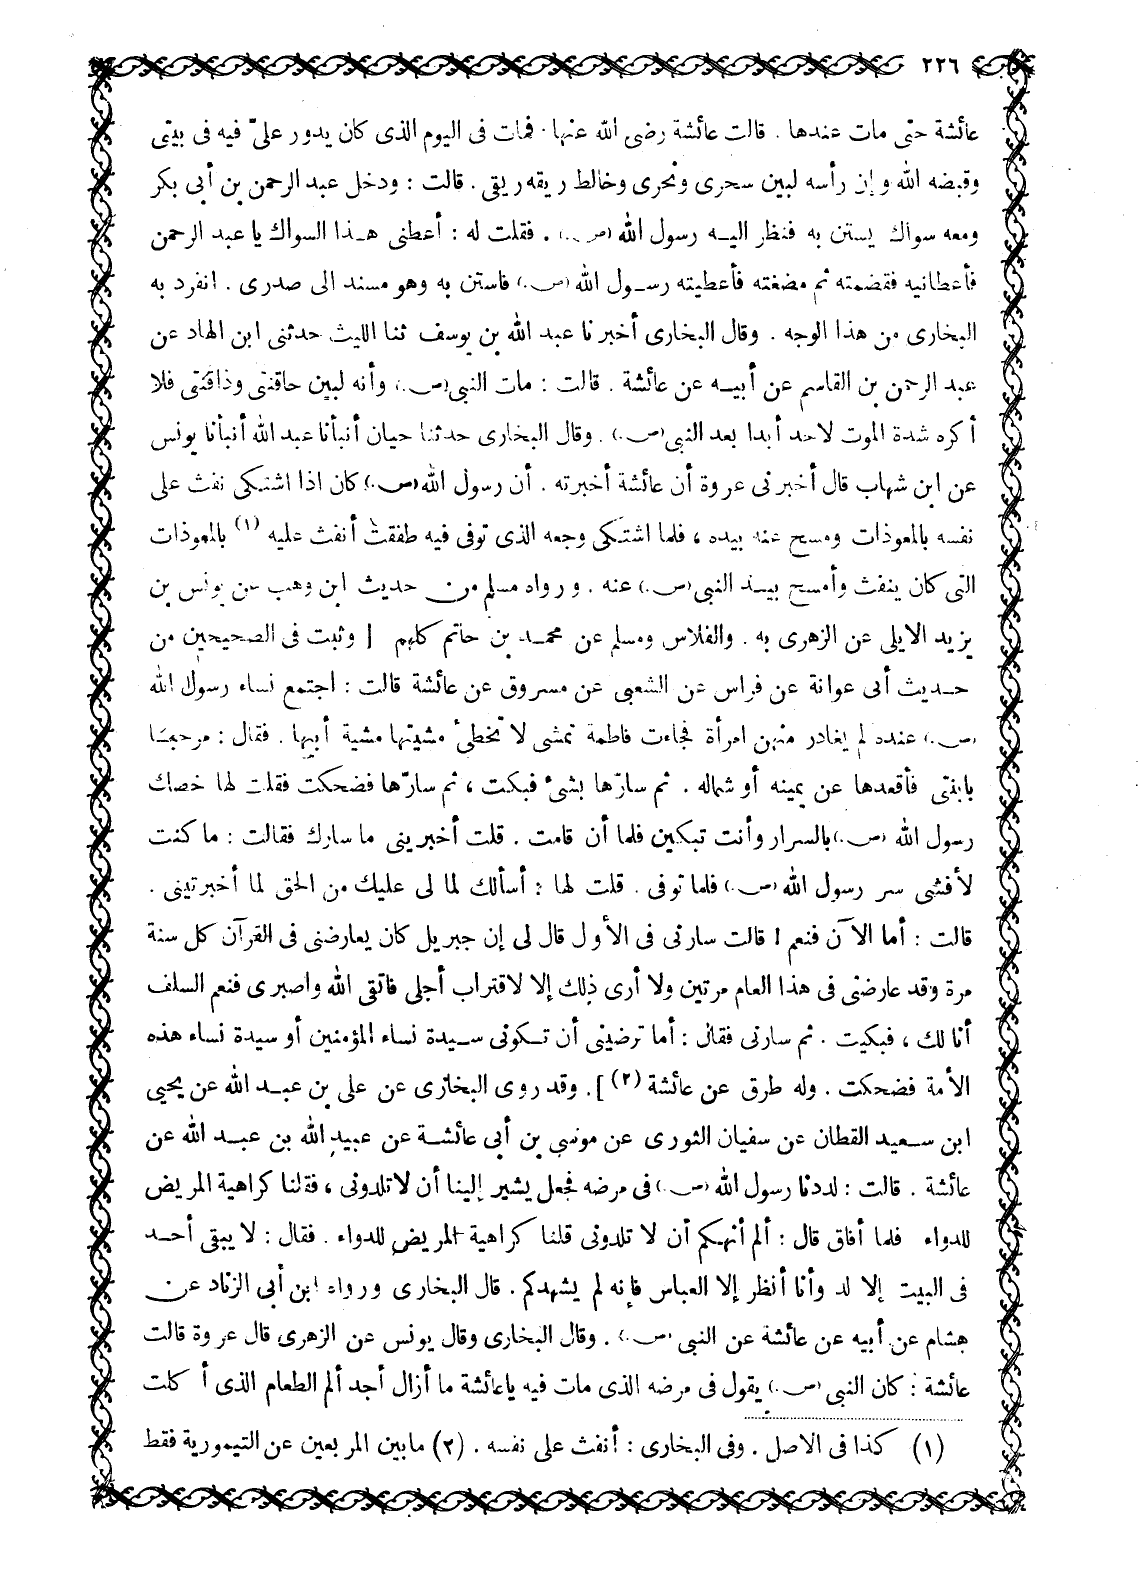 ٢٢٦
عائشة حتى مات عندها . قالت عائشة رضى الله عنها . فمات فى اليوم الذى كان يدور علىّ فيه فى بيتى
وقبضه الله وإن رأسه لبين سحرى ونحرى وخالط ريقه ريقى . قالت : ودخل عبد الرحمن بن أبى بكر
ومعه سواك يستن به فنظر اليه رسول الله (ص.) . فقلت له : أعطنى هذا السواك يا عبد الرحمن
فأعطانيه فقضمته ثم مضغته فأعطيته رسول الله (ص.) فاستن به وهو مسند الى صدرى . انفرد به
البخارى من هذا الوجه . وقال البخارى أخبرنا عبد الله بن يوسف ثنا الليث حدثنى ابن الهاد عن
عبد الرحمن بن القاسم عن أبيه عن عائشة . قالت : مات النبى (ص.) وأنه لبين حاقنتى وذاقنتى فلا
أكره شدة الموت لاحد أبدا بعد النبى (ص.) . وقال البخارى حدثنا حيان أنبأنا عبد الله أنبأنا يونس
عن ابن شهاب قال أخبرنى عروة أن عائشة أخبرته . أن رسول الله (ص.) كان اذا اشتكى نفث على
نفسه بالمعوذات ومسح عنه بيده ، فلما اشتكى وجعه الذى توفى فيه طفقت أنفث عليه (١) بالمعوذات
التى كان ينفث وأمسح بيد النبى (ص.) عنه . ورواه مسلم من حديث ابن وهب عن يونس بن
يزيد الايلى عن الزهرى به . والفلاس ومسلم عن محمد بن حاتم كلهم [ وثبت فى الصحيحين من
حديث أبى عوانة عن فراس عن الشعبى عن مسروق عن عائشة قالت : اجتمع نساء رسول الله
(ص.) عنده لم يغادر منهن امرأة فجاءت فاطمة تمشى لا تخطئ مشيتها مشية أبيها . فقال : مرحبا
بابنتى فأقعدها عن يمينه أو شماله . ثم سارّها بشئ فبكت ، ثم سارّها فضحكت فقلت لها خصك
رسول الله (ص.) بالسرار وأنت تبكين فلما أن قامت . قلت أخبرينى ما سارك فقالت : ما كنت
لأفشى سر رسول الله (ص.) فلما توفى . قلت لها : أسألك لما لى عليك من الحق لما أخبرتينى .
قالت : أما الآن فنعم ! قالت سارنى فى الأول قال لى إن جبريل كان يعارضنى فى القرآن كل سنة
مرة وقد عارضنى فى هذا العام مرتين ولا أرى ذلك إلا لاقتراب أجلى فاتقى الله واصبرى فنعم السلف
أنا لك ، فبكيت . ثم سارنى فقال : أما ترضين أن تكونى سيدة نساء المؤمنين أو سيدة نساء هذه
الأمة فضحكت . وله طرق عن عائشة (٢) ] . وقد روى البخارى عن على بن عبد الله عن يحيى
ابن سعيد القطان عن سفيان الثورى عن موسى بن أبى عائشة عن عبيد الله بن عبد الله عن
عائشة . قالت : لددنا رسول الله (ص.) فى مرضه فجعل يشير إلينا أن لا تلدونى ، فقلنا كراهية المريض
للدواء فلما أفاق قال : ألم أنهكم أن لا تلدونى قلنا كراهية المريض للدواء . فقال : لا يبقى أحد
فى البيت إلا لد وأنا أنظر إلا العباس فإنه لم يشهدكم . قال البخارى ورواه ابن أبى الزناد عن
هشام عن أبيه عن عائشة عن النبى (ص.) . وقال البخارى وقال يونس عن الزهرى قال عروة قالت
عائشة : كان النبى (ص.) يقول فى مرضه الذى مات فيه يا عائشة ما أزال أجد ألم الطعام الذى أكلت
(١) كذا فى الاصل . وفى البخارى : أنفث على نفسه . (٢) ما بين المربعين عن التيمورية فقط